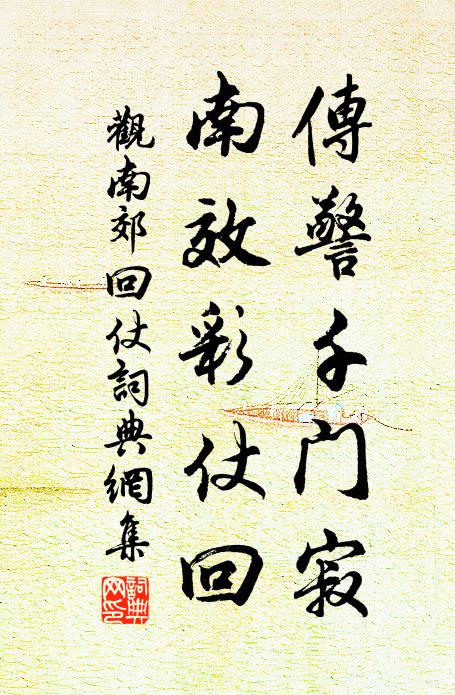 傳警千門寂
南效彩仗回
觀南郊回仗詞典網集
詞典网印